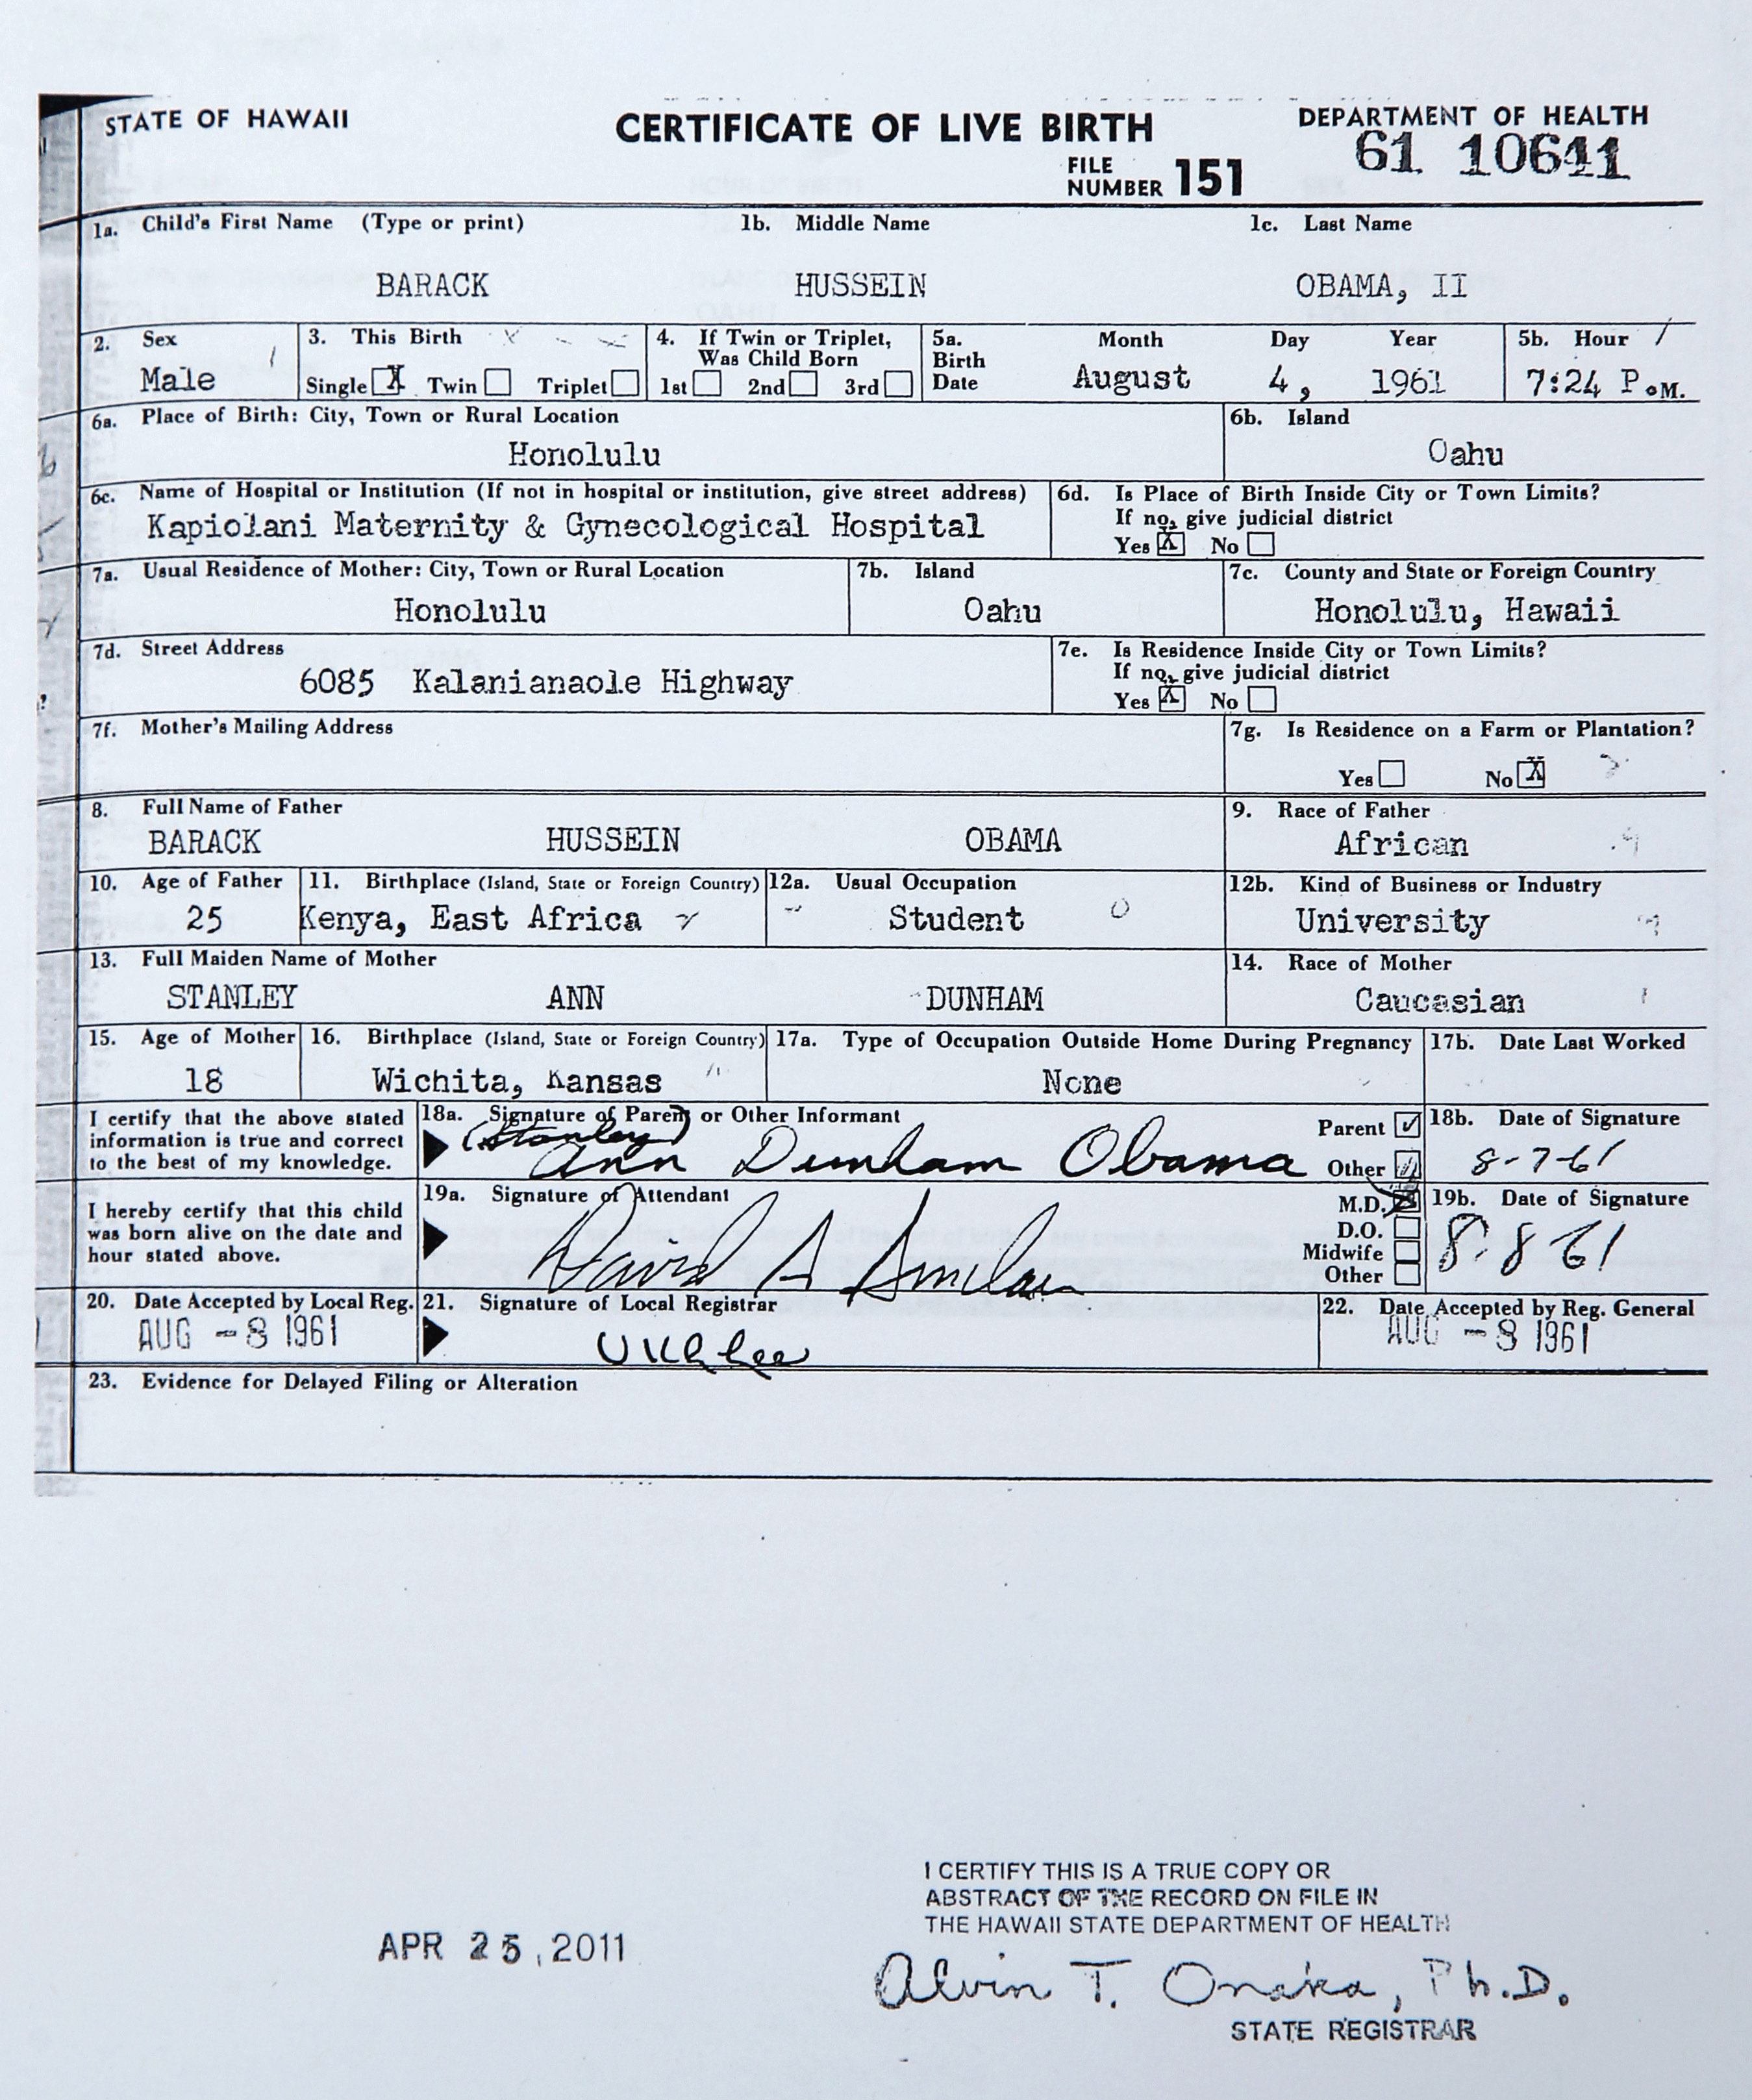 STATE OF HAWAII CERTIFICATE OF LIVE BIRTH DEPARTMENT OF HEALTH
FILE NUMBER 151 61 10641
1a. Child's First Name (Type or print) 1b. Middle Name 1c. Last Name
BARACK HUSSEIN OBAMA, II
2. Sex 3. This Birth 4. If Twin or Triplet, Was Child Born 5a. Birth Date Month Day Year 5b. Hour
Male Single X Twin Triplet 1st 2nd 3rd August 4, 1961 7:24 P.M.
6a. Place of Birth: City, Town or Rural Location 6b. Island
Honolulu Oahu
6c. Name of Hospital or Institution (If not in hospital or institution, give street address) 6d. Is Place of Birth Inside City or Town Limits?
If no, give judicial district
Kapiolani Maternity & Gynecological Hospital Yes X No
7a. Usual Residence of Mother: City, Town or Rural Location 7b. Island 7c. County and State or Foreign Country
Honolulu Oahu Honolulu, Hawaii
7d. Street Address 7e. Is Residence Inside City or Town Limits?
If no, give judicial district
6085 Kalanianaole Highway Yes X No
7f. Mother's Mailing Address 7g. Is Residence on a Farm or Plantation?
Yes No X
8. Full Name of Father 9. Race of Father
BARACK HUSSEIN OBAMA African
10. Age of Father 11. Birthplace (Island, State or Foreign Country) 12a. Usual Occupation 12b. Kind of Business or Industry
25 Kenya, East Africa Student University
13. Full Maiden Name of Mother 14. Race of Mother
STANLEY ANN DUNHAM Caucasian
15. Age of Mother 16. Birthplace (Island, State or Foreign Country) 17a. Type of Occupation Outside Home During Pregnancy 17b. Date Last Worked
18 Wichita, Kansas None
I certify that the above stated information is true and correct to the best of my knowledge.
18a. Signature of Parent or Other Informant Parent Other 18b. Date of Signature
(Stanley) Ann Dunham Obama 8-7-61
I hereby certify that this child was born alive on the date and hour stated above.
19a. Signature of Attendant M.D. D.O. Midwife Other 19b. Date of Signature
David A Sinclair 8-8-61
20. Date Accepted by Local Reg. 21. Signature of Local Registrar 22. Date Accepted by Reg. General
AUG -8 1961 U K L Lee AUG -8 1961
23. Evidence for Delayed Filing or Alteration
I CERTIFY THIS IS A TRUE COPY OR
ABSTRACT OF THE RECORD ON FILE IN
THE HAWAII STATE DEPARTMENT OF HEALTH
APR 25, 2011
Alvin T. Onaka, Ph.D.
STATE REGISTRAR